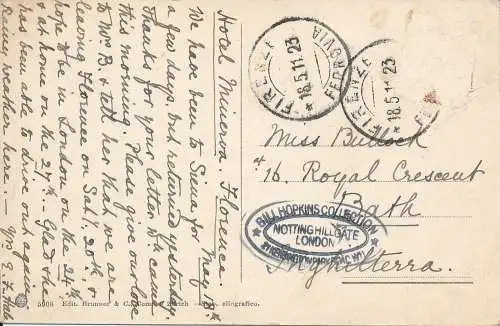 Hotel Minerva. Florence.
May 18th
We have been to Siena for
a few days. but returned yesterday.
Thanks for your letter wh. came
this morning. Please give our love
to Mrs B. & tell her that we are
leaving Florence on Satʸ 20th &
hope to be in London on the 24th
& at home on the 27th. Glad she
has been able to drive out again.
Rainy weather here. —
FIRENZE
FERROVIA
* 18.5.11 23
FIRENZE
* 18.5.11 23
Miss Bullock
at 16. Royal Crescent
Bath
BILL HOPKINS COLLECTION
NOTTINGHILLGATE
LONDON
Inghilterra.
5508 Edit. Brunner & C.